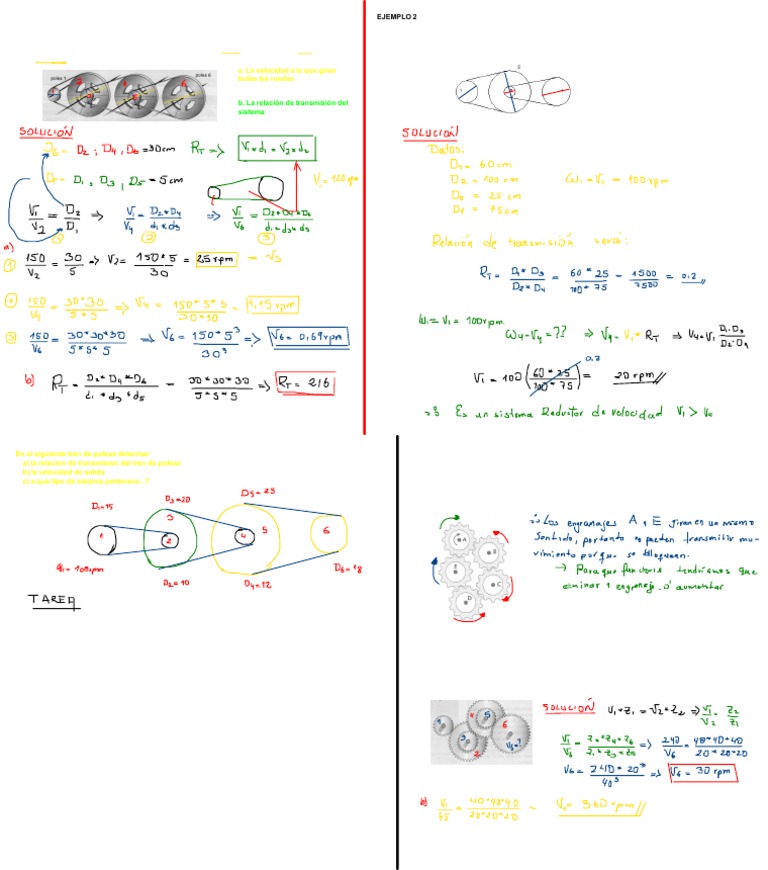 EJEMPLO 2
polea 1
polea 6
a. La velocidad a la que giran todas las ruedas
b. La relación de transmisión del sistema
SOLUCIÓN
D6 = D2 ; D4 , D6 = 30cm
RT => V1 * d1 = V2 * d2
D1 , D3 , D5 = 5cm
V1/V2 = D2/D1 => V1/V4 = D2*D4 / d1*d3 => V1/V6 = D2*D4*D6 / d1*d3*d5
1 2 3
a)
1 150/V2 = 30/5 => V2 = 150*5/30 = 25rpm = V3
2 150/V4 = 30*30/5*5 => V4 = 150*5*5/30*30 = 4,15rpm
3 150/V6 = 30*30*30/5*5*5 => V6 = 150*5³/30³ => V6 = 0,69rpm
b) RT = D2*D4*D6 / d1*d3*d5 = 30*30*30/5*5*5 => RT = 216
SOLUCIÓN
Datos.
D1 = 60cm
D2 = 100cm
D3 = 25cm
D4 = 75cm
W1 = V1 = 100rpm
Relación de transmisión será:
RT = D1*D3/D2*D4 = 60*25/100*75 = 1500/7500 = 0,2
W1 = V1 = 100rpm
W4 = V4 = ?? => V4 = V1 * RT => V4 = V1 D1.D3/D2.D4
V1 = 100 (60*25/100*75) = 20rpm
0,2
=> Es un sistema Reductor de velocidad V1 > V4
En el siguiente tren de poleas determinar:
a) la relación de transmisión del tren de poleas
b) la velocidad de salida
c) a que tipo de sistema pertenece..?
D1=15
D3=20
D5=25
1
2
3
4
5
6
D2=10
D4=12
D6=18
TAREA
A
B
C
D
E
Los engranajes A y E giran en un mismo
sentido, portanto no pueden transmitir mo-
vimiento porque se bloquean.
→ Para que funcione tendríamos que
eliminar 1 engranaje ó aumentar
SOLUCIÓN V1*Z1 = V2*Z2 => V1/V2 = Z2/Z1
V1/V6 = Z2*Z4*Z6/Z1*Z3*Z5 => 240/V6 = 40*40*40/20*20*20
V6 = 240*20³/40³ => V6 = 30rpm
b) V1/45 = 40*40*40/20*20*20 = V1 = 360rpm